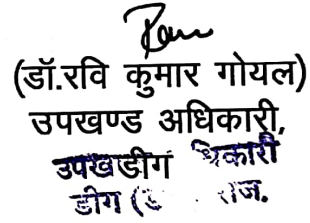 (डॉ.रवि कुमार गोयल)
उपखण्ड अधिकारी,
उपखडीग धिकारी
डीग ( राज.